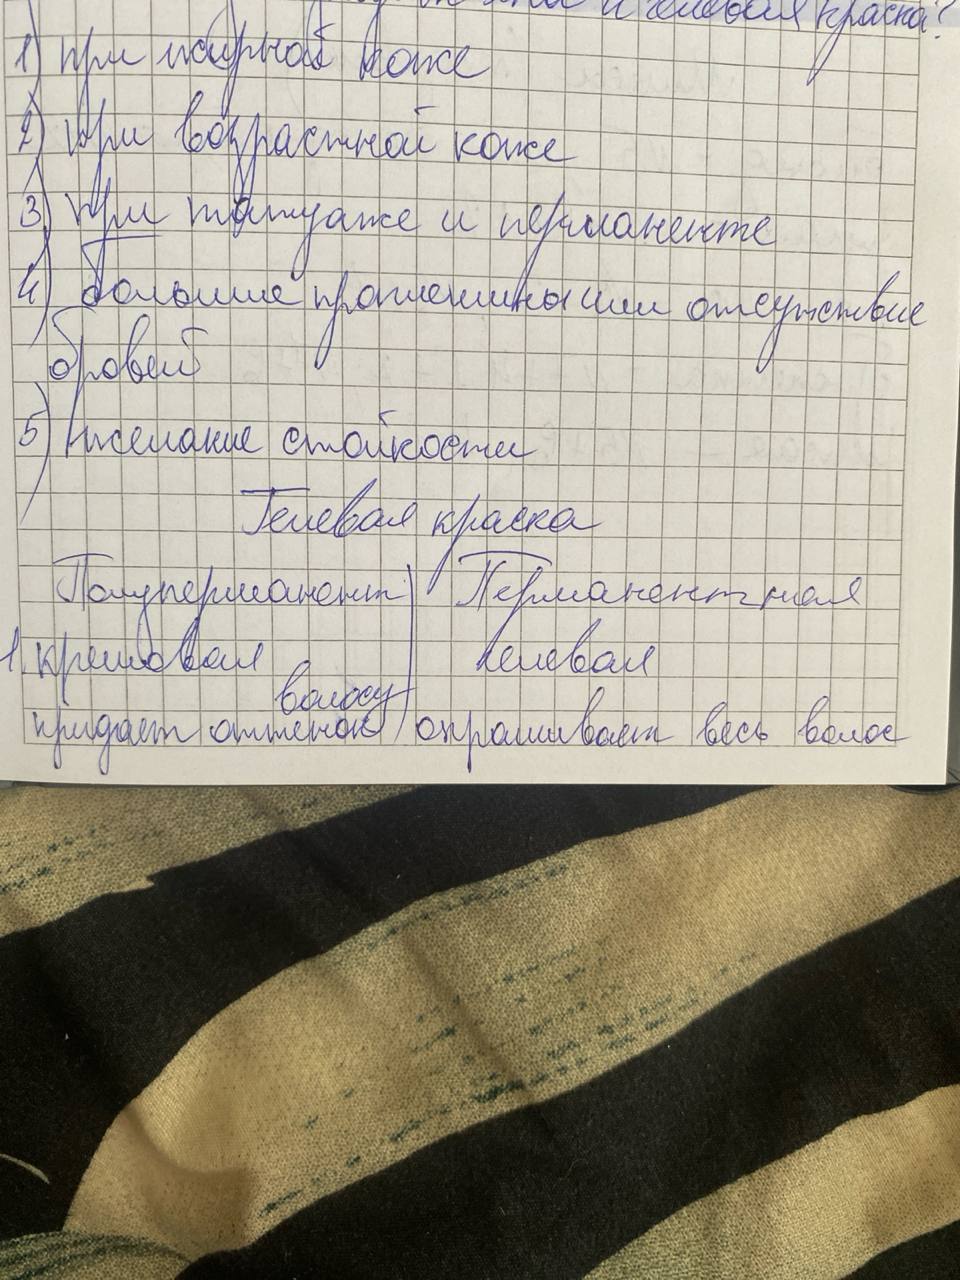 и гелевая краска?
1) при жирной коже
2) при возрастной коже
3) при татуаже и перманенте
4) Большие проплешины или отсутствие
бровей
5) желание стойкости
Гелевая краска
Полуперманент Перманентная
1. кремовая гелевая
волосу
придает оттенок окрашивает весь волос